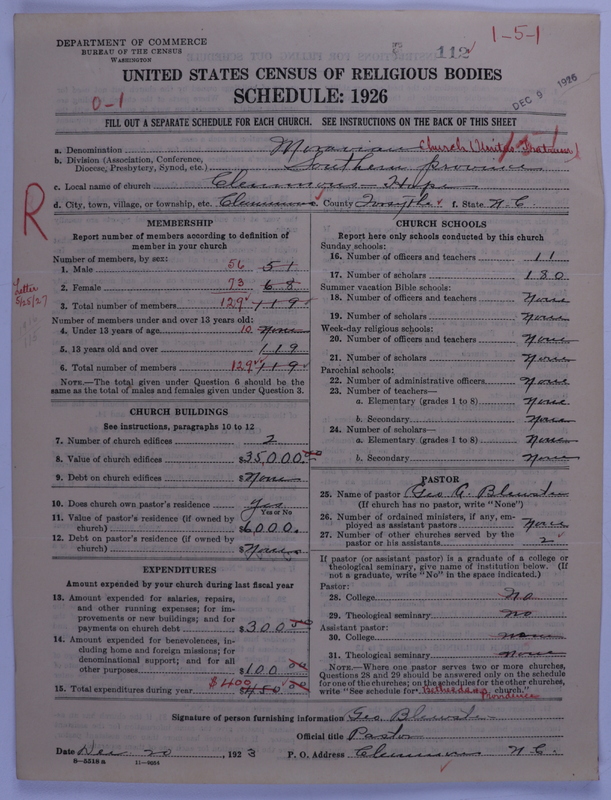 DEPARTMENT OF COMMERCE
BUREAU OF THE CENSUS
WASHINGTON
112
1-5-1
UNITED STATES CENSUS OF RELIGIOUS BODIES
SCHEDULE: 1926
0-1
DEC 9 1926
FILL OUT A SEPARATE SCHEDULE FOR EACH CHURCH. SEE INSTRUCTIONS ON THE BACK OF THIS SHEET
a. Denomination Moravian Church (Unitas Fratrum)
b. Division (Association, Conference, Diocese, Presbytery, Synod, etc.) Southern Province
c. Local name of church Clemmons Hope
d. City, town, village, or township, etc. Clemmons e. County Forsythe f. State N.C.
R
Letter
5/25/27
MEMBERSHIP
Report number of members according to definition of
member in your church
Number of members, by sex:
1. Male 56 51
2. Female 73 68
3. Total number of members 129 119
Number of members under and over 13 years old:
4. Under 13 years of age 10 None
5. 13 years old and over 119
6. Total number of members 129 119
NOTE.—The total given under Question 6 should be
same as the total of males and females given under Question 3.
CHURCH BUILDINGS
See instructions, paragraphs 10 to 12
7. Number of church edifices 2
8. Value of church edifices $35,000.00
9. Debt on church edifices $None
10. Does church own pastor's residence Yes
Yes or No
11. Value of pastor's residence (if owned by
church) $6,000.
12. Debt on pastor's residence (if owned by
church) $None
EXPENDITURES
Amount expended by your church during last fiscal year
13. Amount expended for salaries, repairs,
and other running expenses; for im-
provements or new buildings; and for
payments on church debt $300
14. Amount expended for benevolences, in-
cluding home and foreign missions; for
denominational support; and for all
other purposes $100
15. Total expenditures during year $400 $450
CHURCH SCHOOLS
Report here only schools conducted by this church
Sunday schools:
16. Number of officers and teachers 11
17. Number of scholars 180
Summer vacation Bible schools:
18. Number of officers and teachers None
19. Number of scholars None
Week-day religious schools:
20. Number of officers and teachers None
21. Number of scholars None
Parochial schools:
22. Number of administrative officers None
23. Number of teachers—
a. Elementary (grades 1 to 8) None
b. Secondary None
24. Number of scholars—
a. Elementary (grades 1 to 8) None
b. Secondary None
PASTOR
25. Name of pastor Geo A. Blewster
(If church has no pastor, write "None")
26. Number of ordained ministers, if any, em-
ployed as assistant pastors None
27. Number of other churches served by the
pastor or his assistants 2
If pastor (or assistant pastor) is a graduate of a college or
theological seminary, give name of institution below. (If
not a graduate, write "No" in the space indicated.)
Pastor:
28. College No
29. Theological seminary No
Assistant pastor:
30. College None
31. Theological seminary None
NOTE.—Where one pastor serves two or more churches,
Questions 28 and 29 should be answered only on the schedule
for one of the churches; on the schedules for the other churches,
write "See schedule for Bethesda church."
Providence
Signature of person furnishing information Geo Blewster
Official title Pastor
Date Dec 20, 1923 P. O. Address Clemmons N.C.
8-5518 a 11-9054